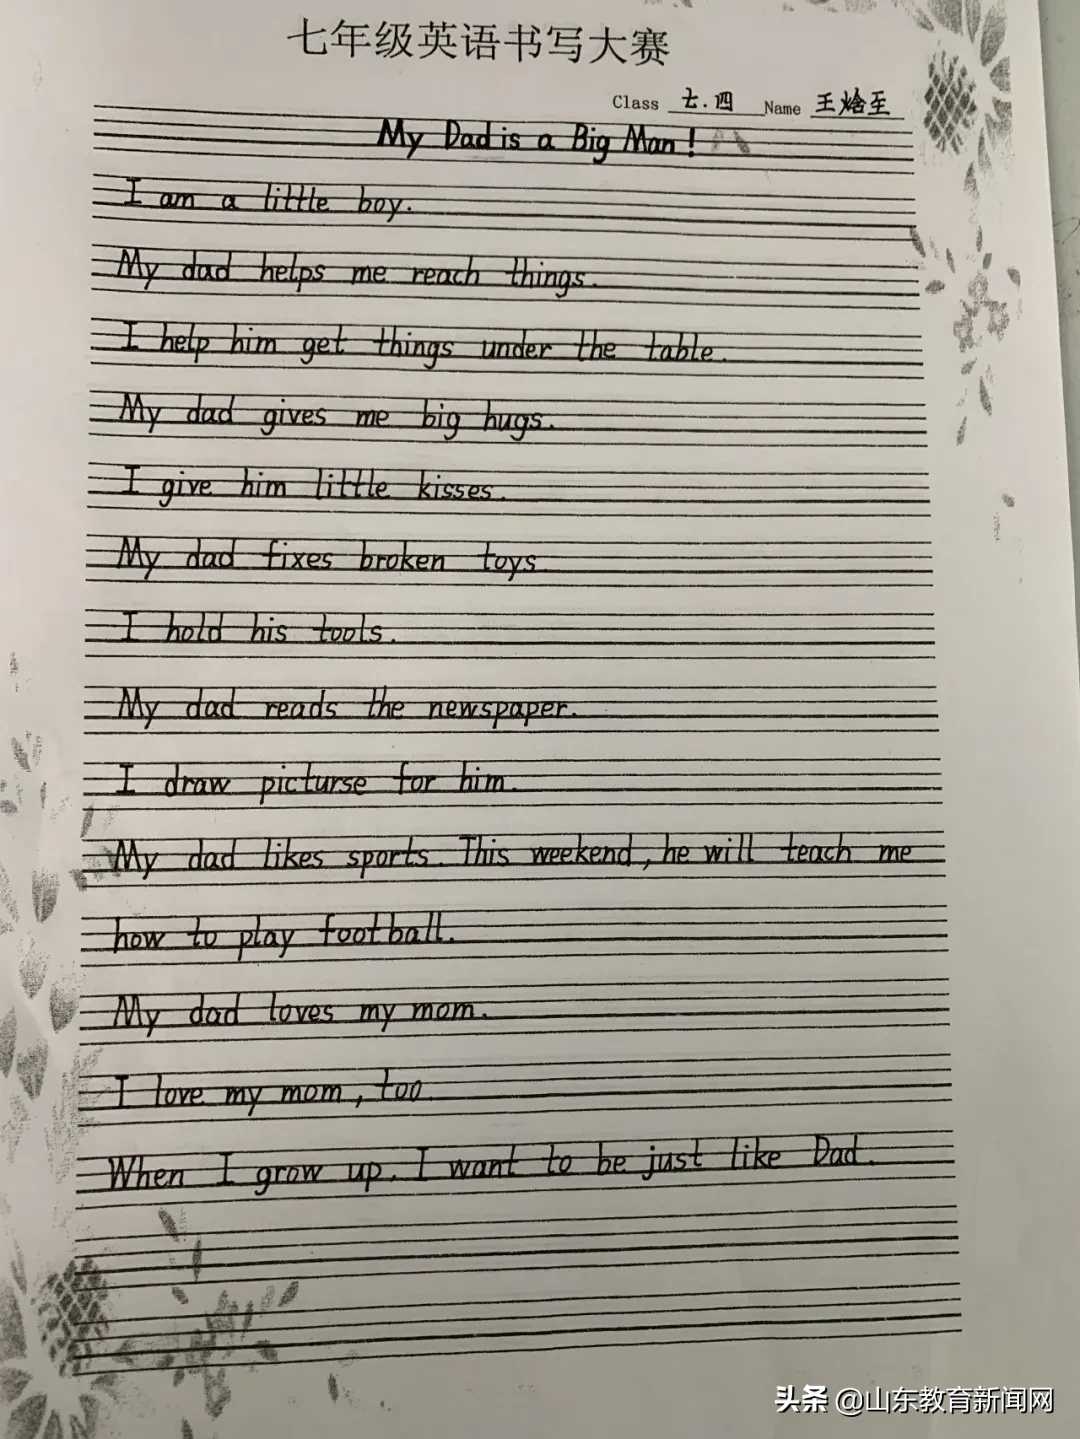 七年级英语书写大赛
Class 七.四 Name 王焓至
My Dad is a Big Man!
I am a little boy.
My dad helps me reach things.
I help him get things under the table.
My dad gives me big hugs.
I give him little kisses.
My dad fixes broken toys
I hold his tools.
My dad reads the newspaper.
I draw picturse for him.
My dad likes sports. This weekend, he will teach me
how to play football.
My dad loves my mom.
I love my mom, too
When I grow up. I want to be just like Dad.
头条 @山东教育新闻网